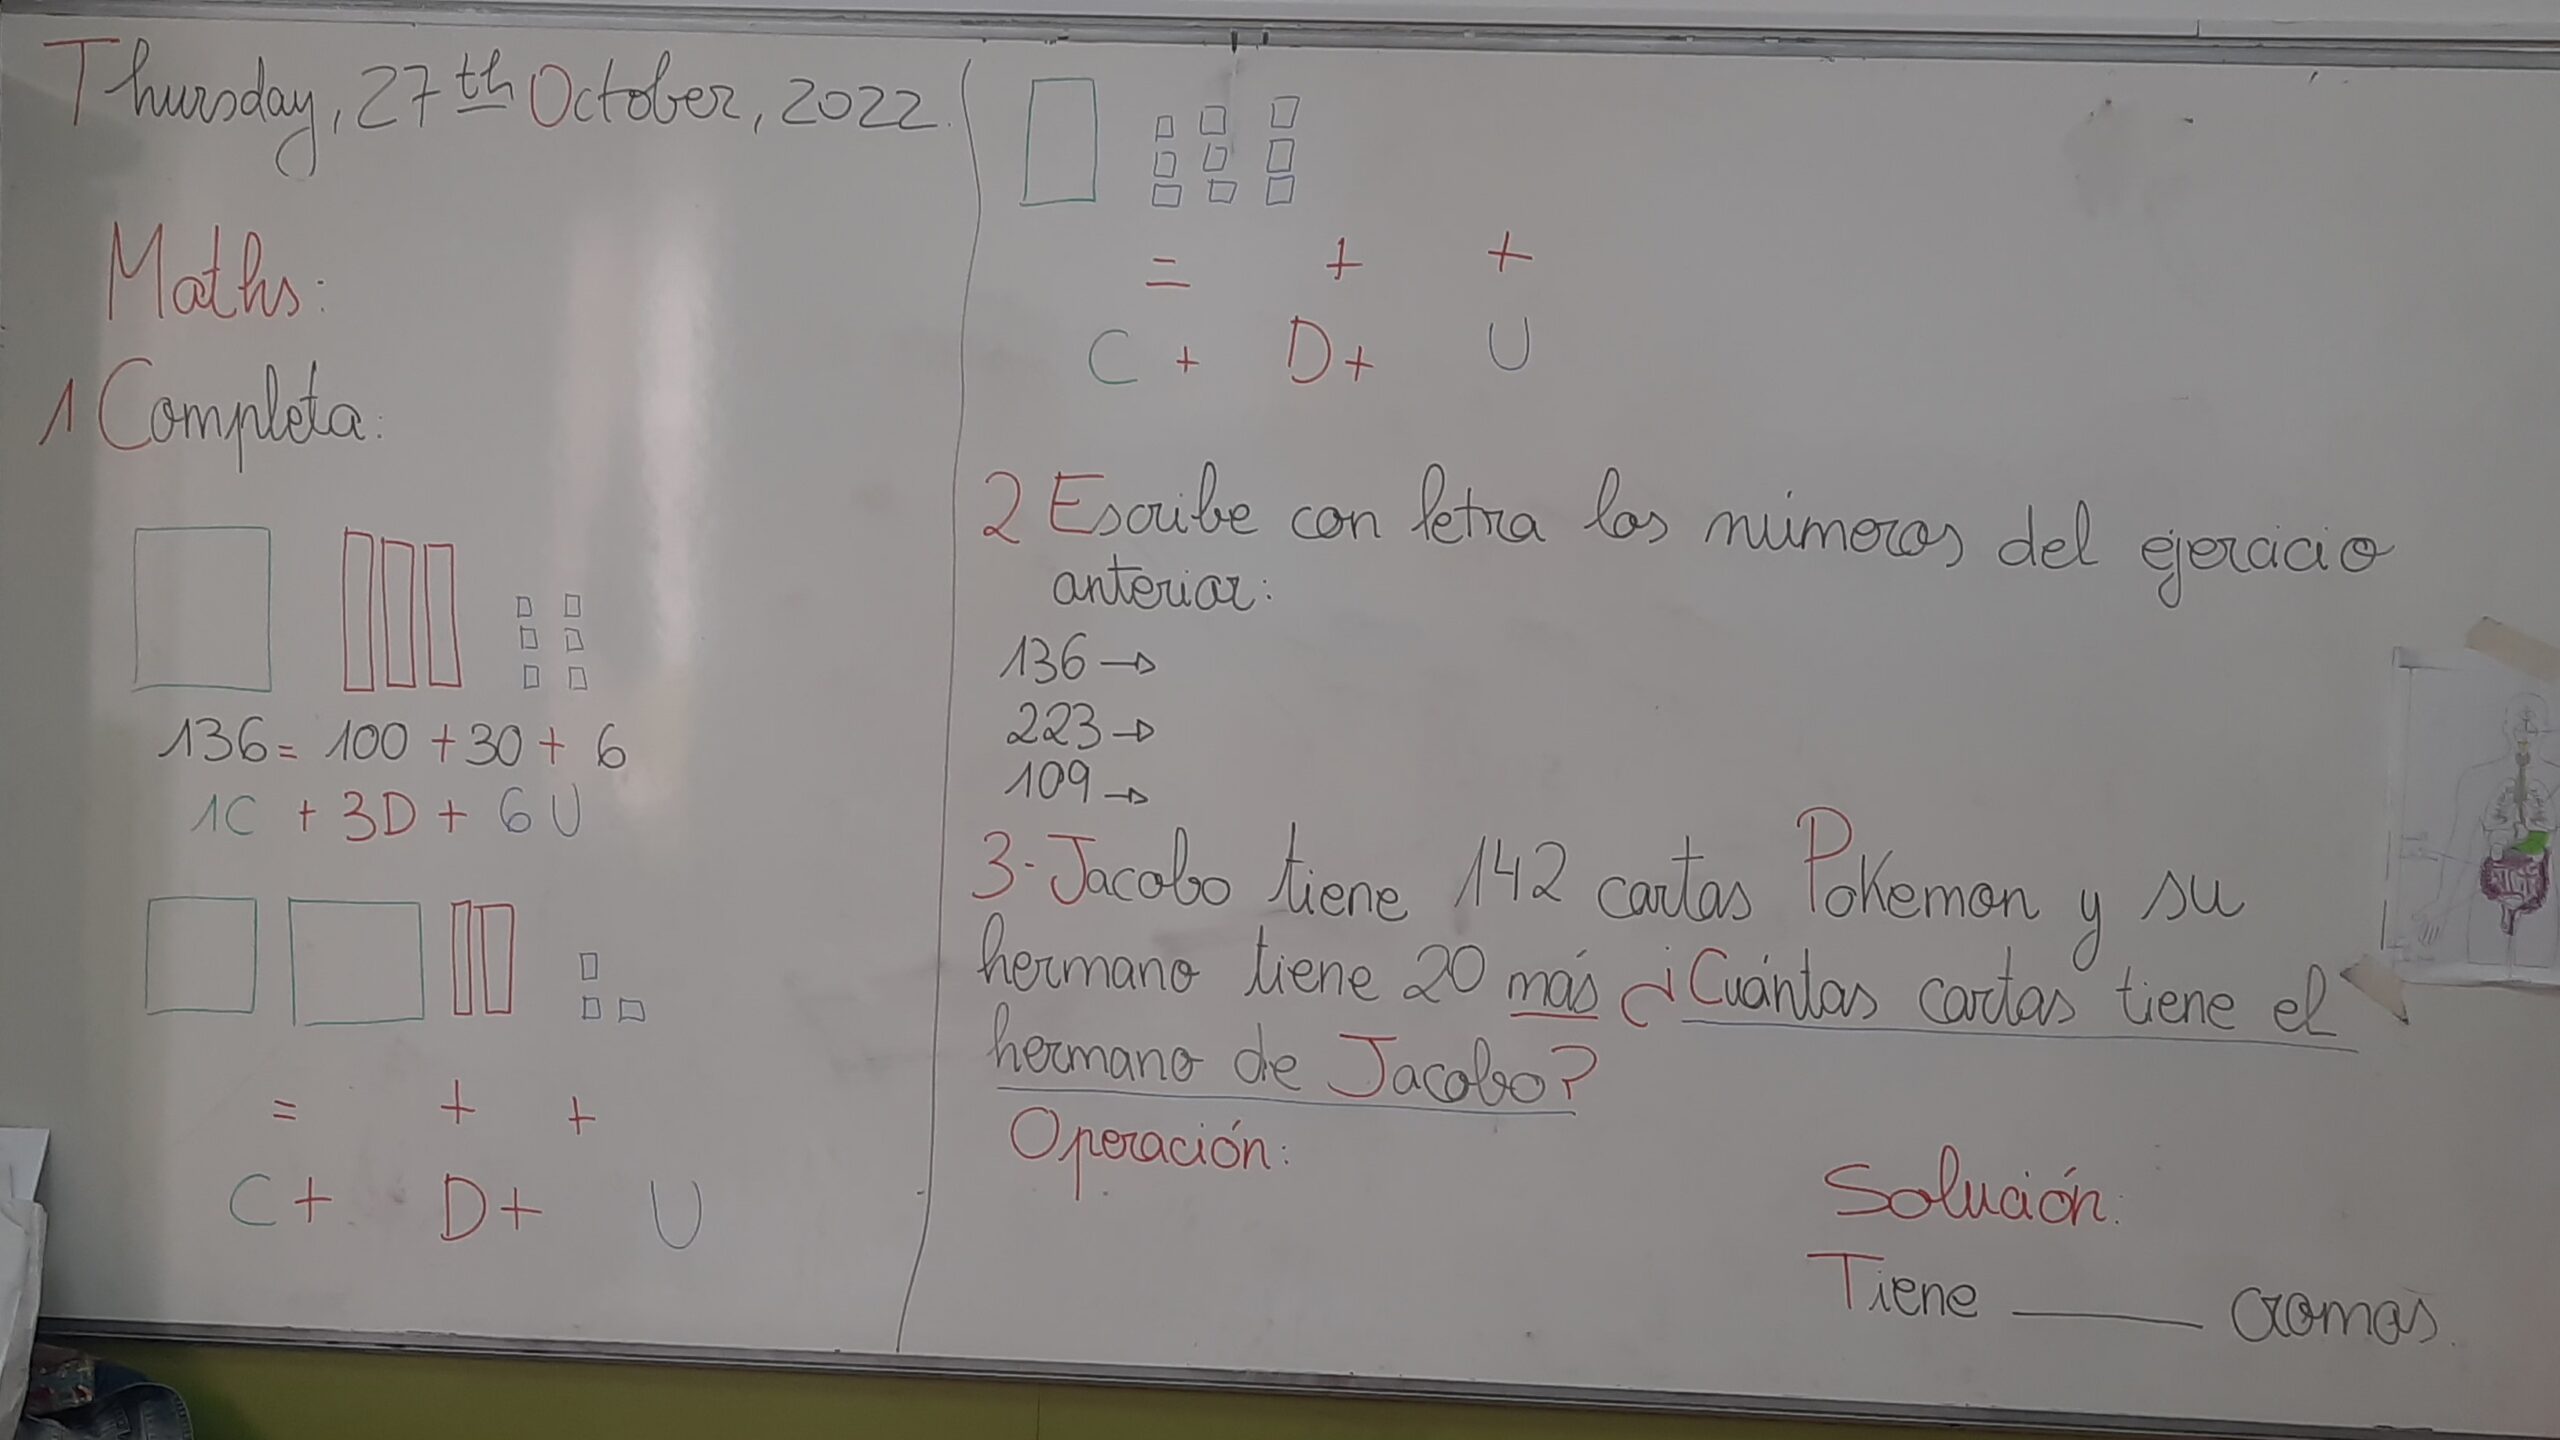 Thursday, 27th October, 2022.
Maths:
1 Completa:
136 = 100 + 30 + 6
1C + 3D + 6U
= + +
C + D + U
= + +
C + D + U
2 Escribe con letra los números del ejercicio
anterior:
136 →
223 →
109 →
3- Jacobo tiene 142 cartas Pokemon y su
hermano tiene 20 más ¿Cuántas cartas tiene el
hermano de Jacobo?
Operación:
Solución:
Tiene ____ cromos.